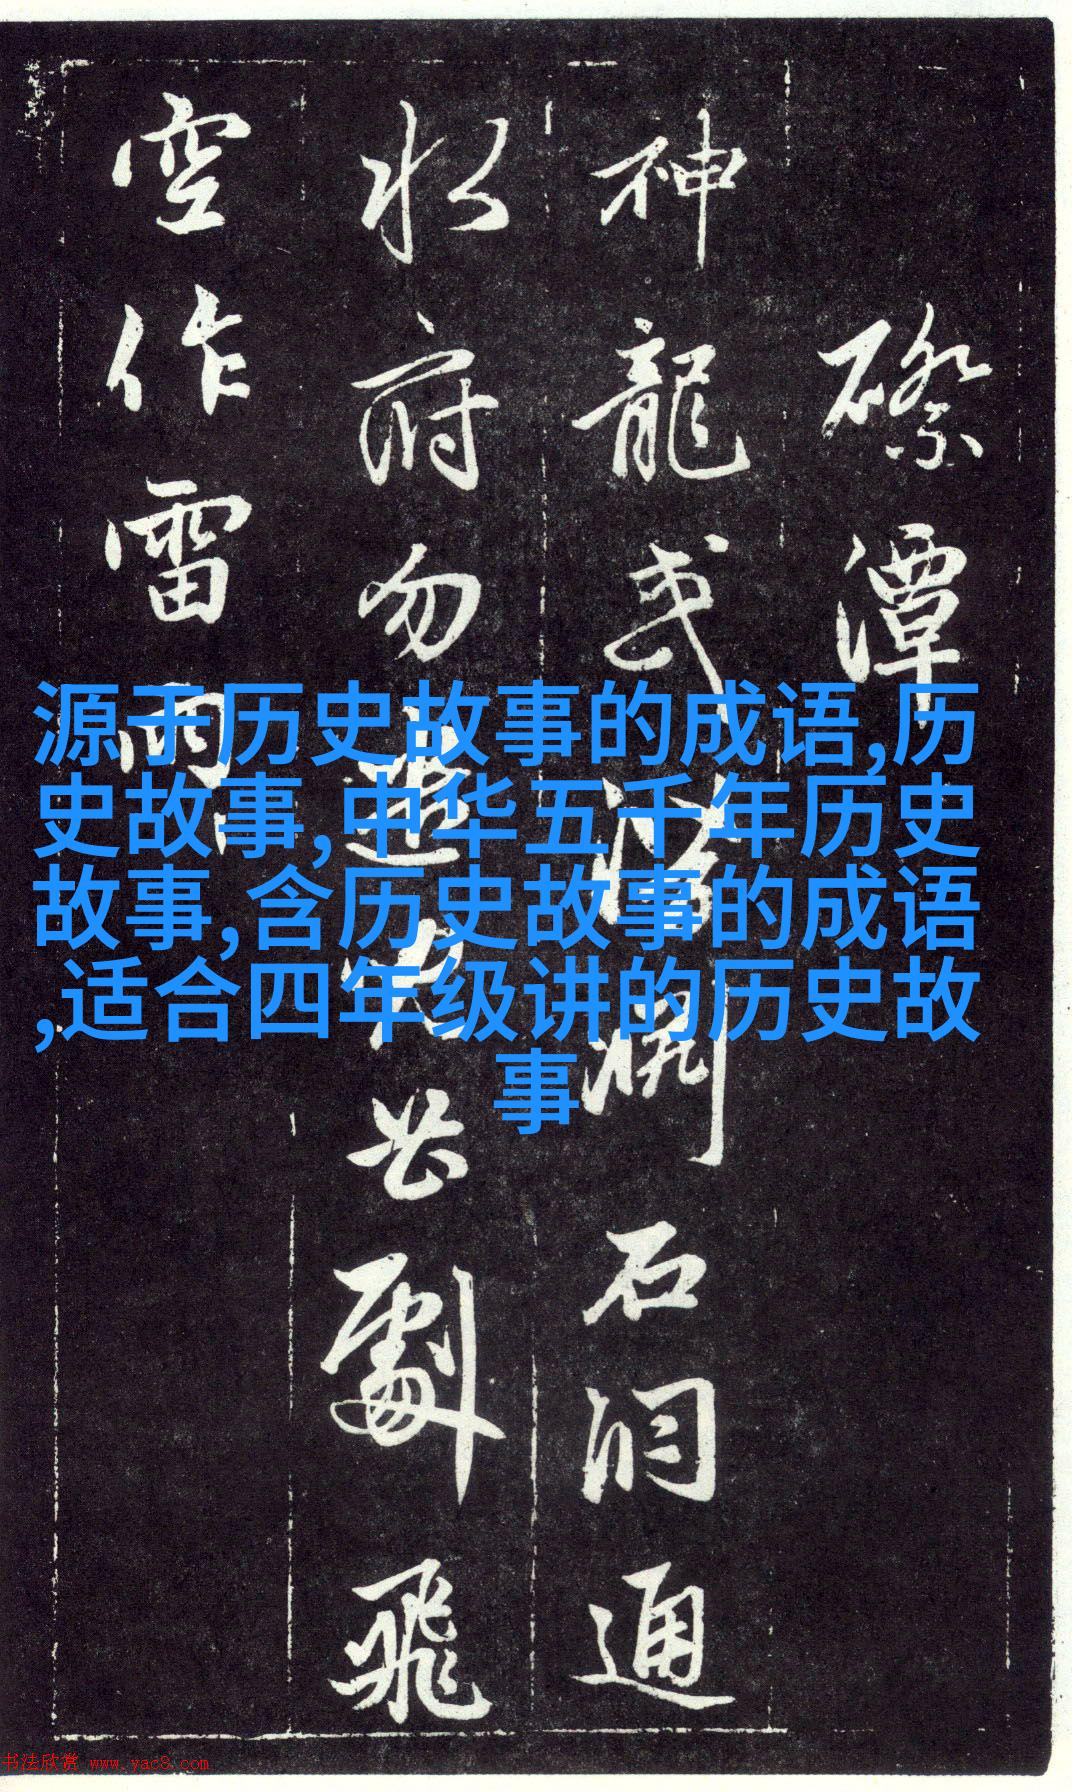 潭
神龍或潛淵石洞通
水府勿劚飛
空作雷雨
源于历史故事的成语,历
史故事,中华五千年历史
故事,含历史故事的成语
,适合四年级讲的历史故
事
书法欣赏 www.yac8.com